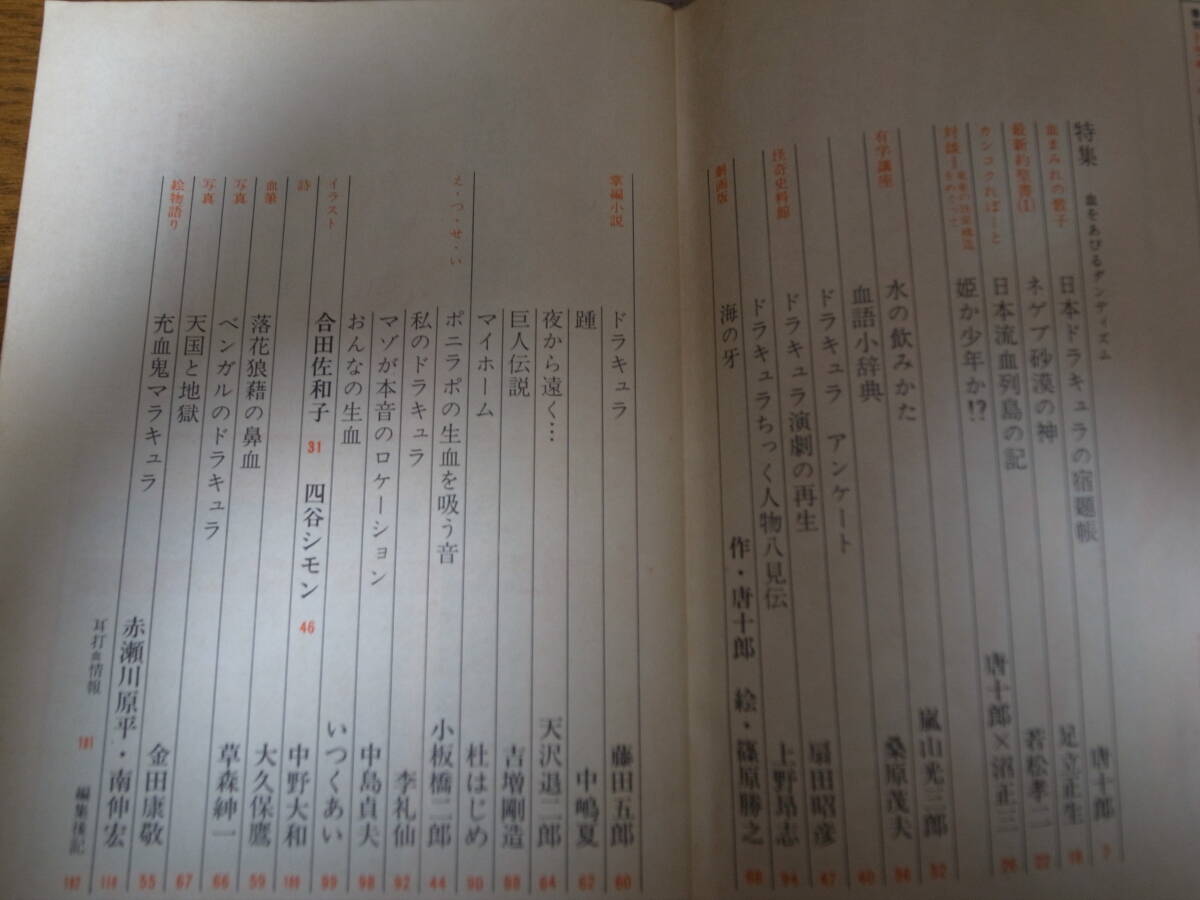 特集 血をあびるダンディズム
血まみれの養子 日本ドラキュラの宿題帳 唐十郎 7
最新約聖書(1) ネゲブ砂漠の神 足立正生
日本流血列島の記 若松孝二 22
対談 姫か少年か!? 唐十郎×沼正三
水の飲みかた 嵐山光三郎 52
有字講座 血語小辞典 桑原茂夫
ドラキュラ アンケート 40
怪奇史料館 ドラキュラ演劇の再生 扇田昭彦 47
ドラキュラちっく人物八見伝 上野昂志 94
劇画版 海の牙 作・唐十郎 絵・篠原勝之 68
掌編小説 ドラキュラ 藤田五郎 60
踵 中嶋夏 62
夜から遠く… 天沢退二郎 64
巨人伝説 吉増剛造 88
マイホーム 杜はじめ 90
え・つ・せ・い ポニラポの生血を吸う音 小板橋二郎 44
私のドラキュラ 李礼仙 92
マゾが本音のロケーション 中島貞夫 98
おんなの生血 いつくあい 99
イラスト 合田佐和子 31 四谷シモン 46
詩 中野大和
血筆 落花狼藉の鼻血 大久保鷹 59
写真 ベンガルのドラキュラ 草森紳一 66
写真 天国と地獄 67
絵物語り 充血鬼マラキュラ 金田康敬 55
赤瀬川原平・南伸宏
耳打血情報 181 編集後記 182